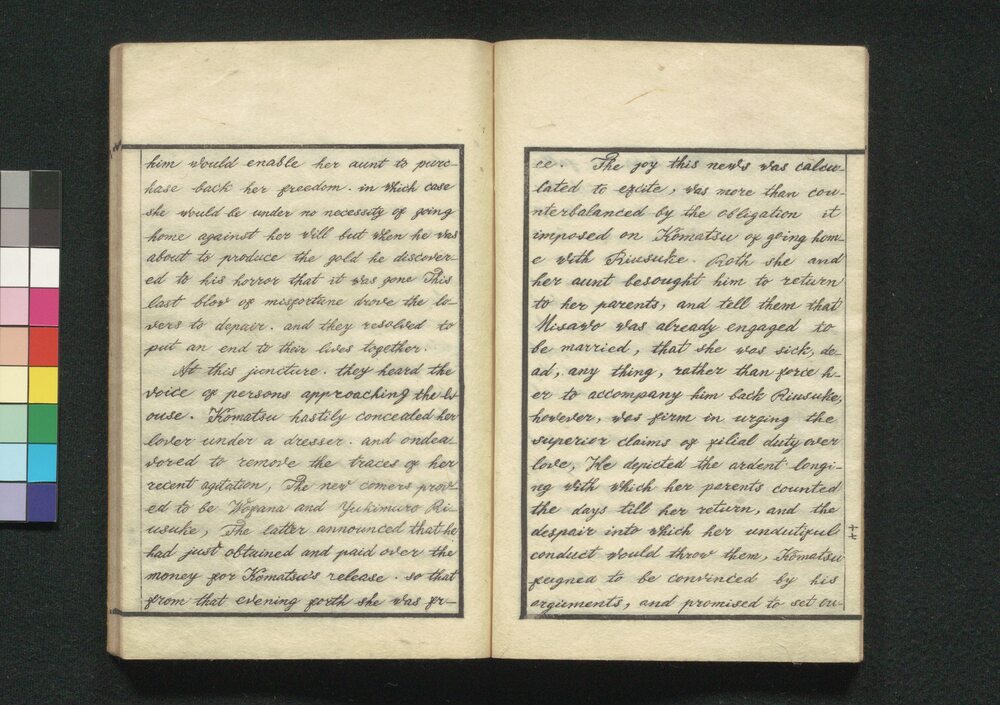 him would enable her aunt to purc-
hase back her freedom. in which case
she would be under no necessity of going
home against her will but when he was
about to produce the gold he discover-
ed to his horror that it was gone This
last blow of misfortune drove the lo-
vers to depair. and they resolved to
put an end to their lives together.
At this juncture. they heard the
voice of persons approaching the h-
ouse. Komatsu hastily concealed her
lover under a dresser. and endea-
vored to remove the traces of her
recent agitation, The new comers prov-
ed to be Wofana and Yukimuro Ri-
usuke, The latter announced that he
had just obtained and paid over the
money for Komatsu's release. so that
from that evening forth she was fr-
ee. The joy this news was calcu-
lated to excite, was more than cou-
nterbalanced by the obligation it
imposed on Komatsu of going hom-
e with Riusuke. Both she and
her aunt besought him to return
to her parents, and tell them that
Misawo was already engaged to
be married, that she was sick, de-
ad, any thing, rather than force h-
er to accompany him back Riusuke,
however, was firm in urging the
superior claims of filial duty over
love, He depicted the ardent longi-
ng with which her parents counted
the days till her return, and the
despair into which her undutiful
conduct would throw them, Komatsu
feigned to be convinced by his
arguments, and promised to set ou-